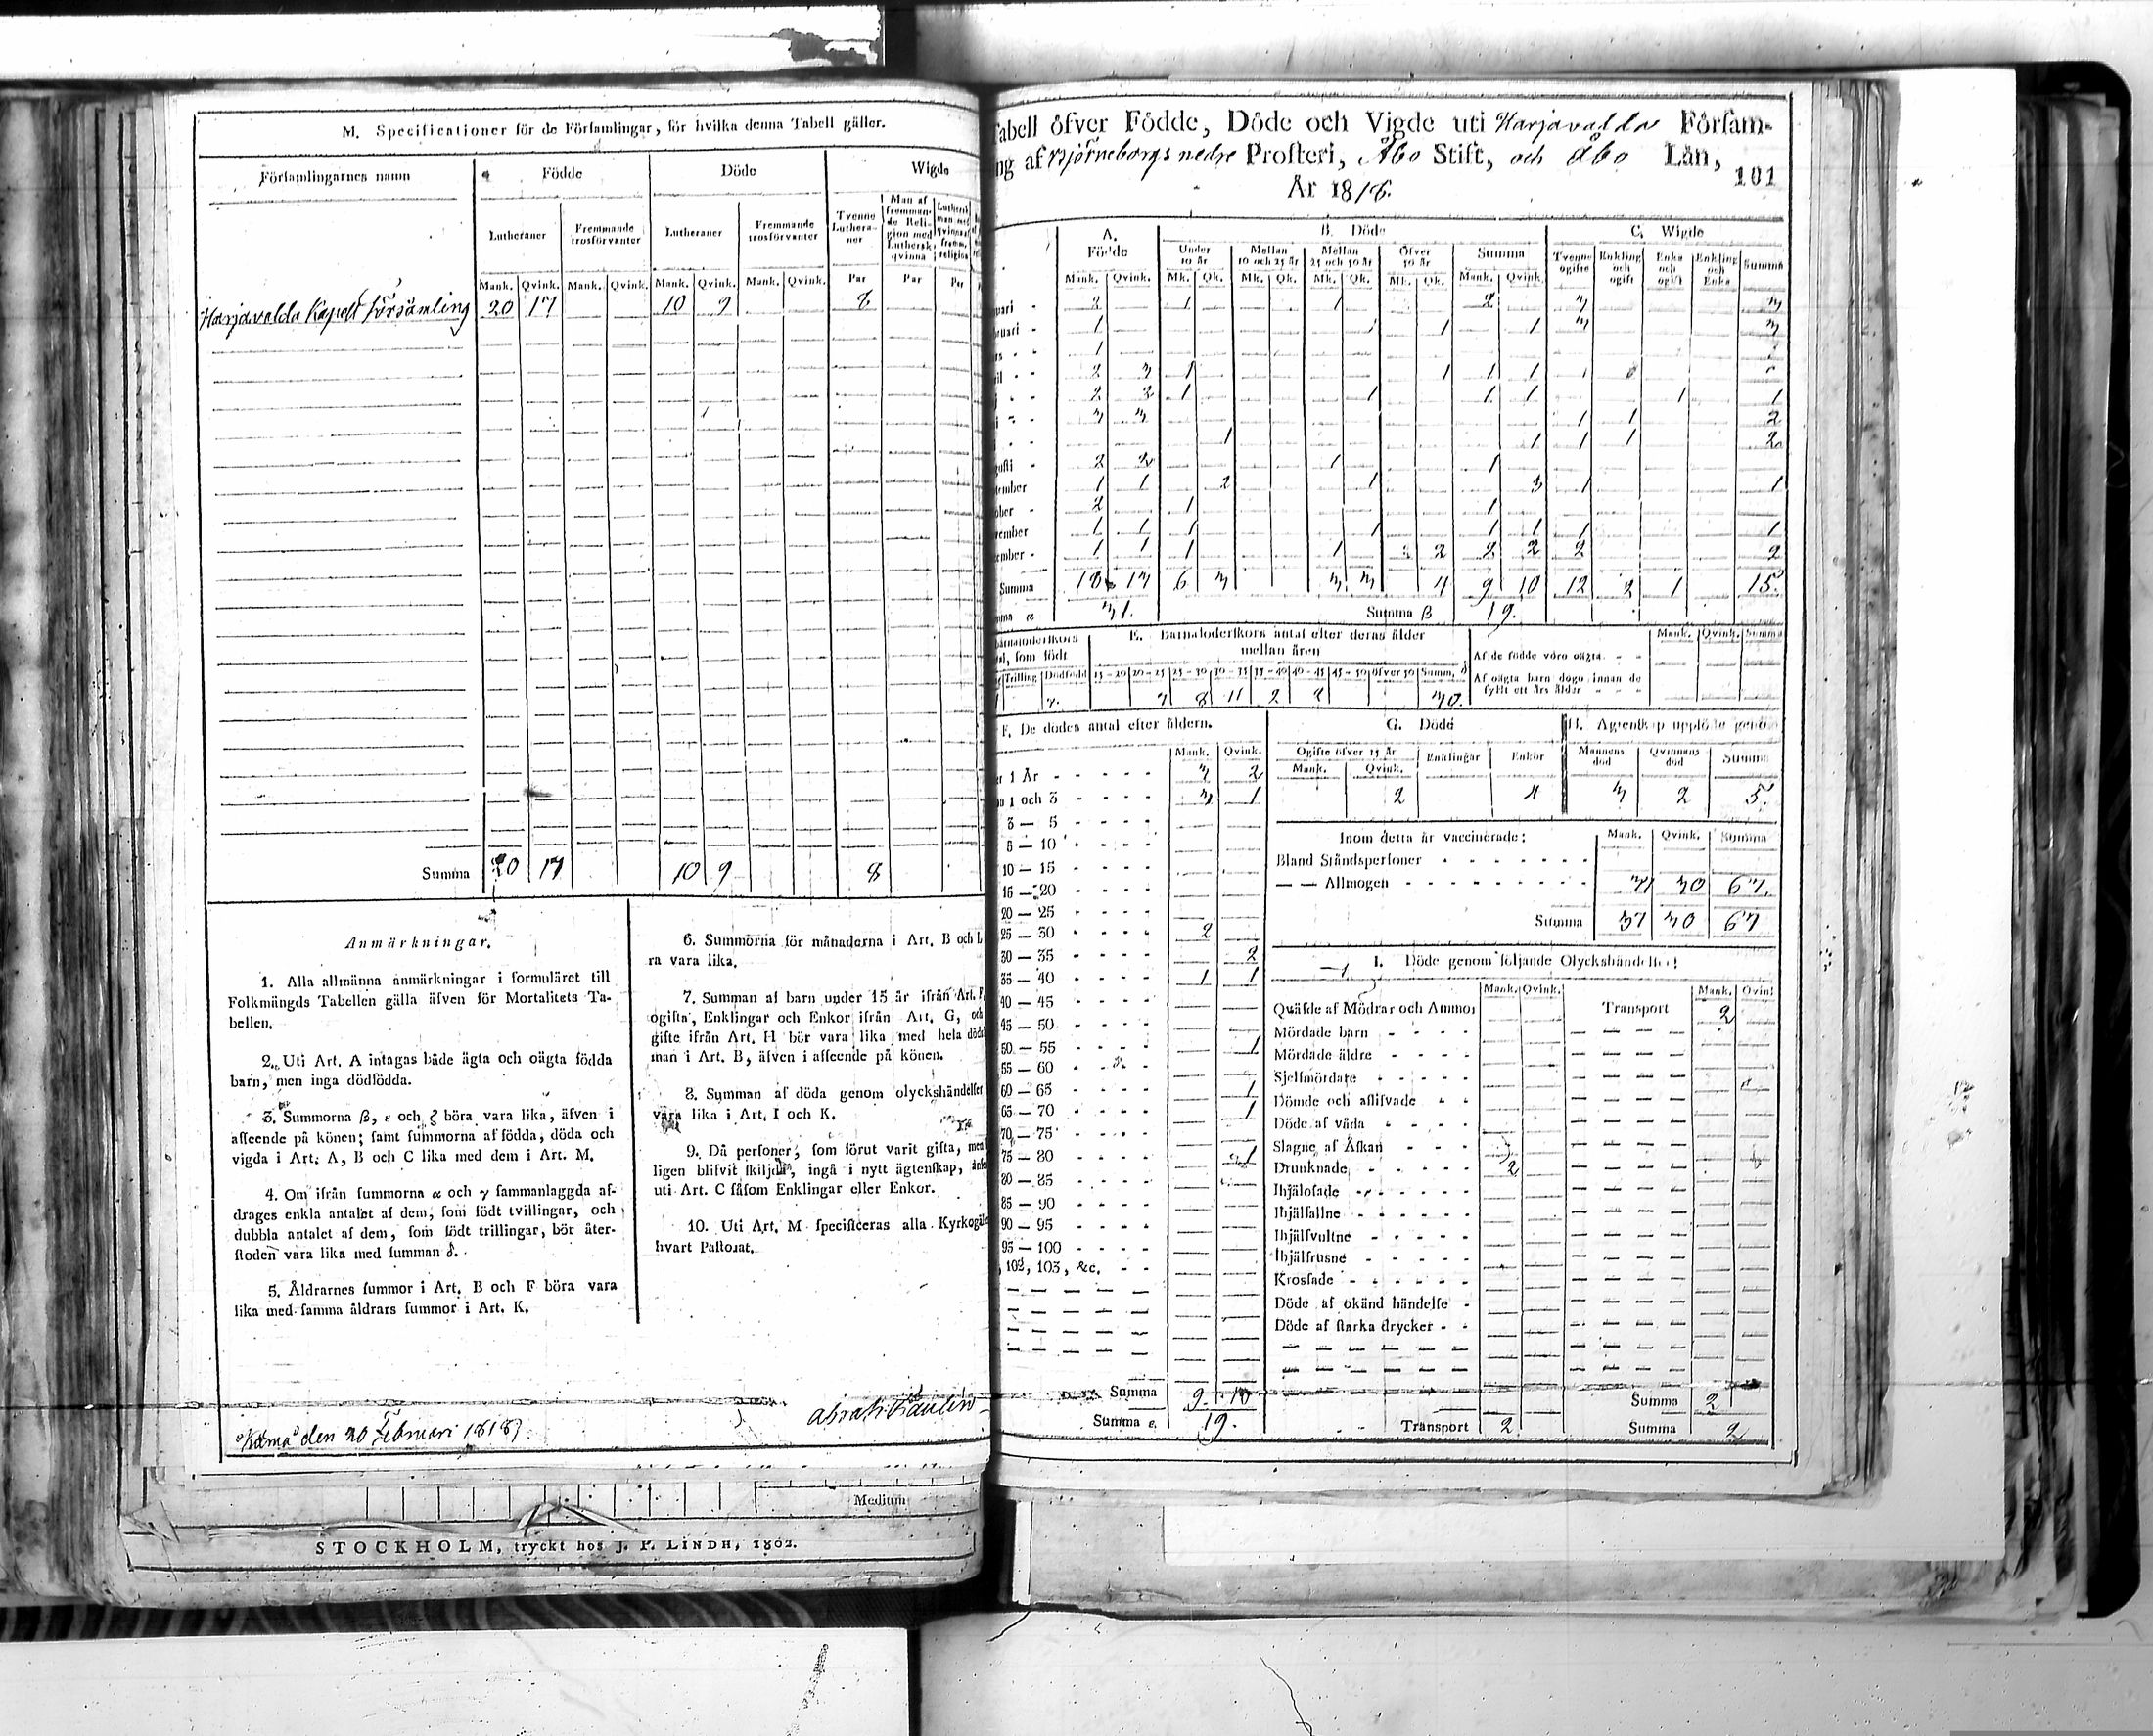 M. Specificationer för de Församlingar, för hvilka denna Tabell gäller.
Församlingarnes namn Födde Döde Wigde
Lutheraner Fremmande trosförvanter Lutheraner Fremmande trosförvanter Tvenne Lutheraner Man af fremmande Religion med Luthersk qvinna
Mank. Qvink. Mank. Qvink. Mank. Qvink. Mank. Qvink. Par Par Par
Harjavalda Kapell församling 20 17 10 9 8
Summa 20 17 10 9 8
Anmärkningar.
1. Alla allmänna anmärkningar i formuläret till
Folkmängds Tabellen gälla äfven för Mortalitets Ta-
bellen.
2. Uti Art. A intagas både ägta och oägta födda
barn, men inga dödfödda.
3. Summorna ß, ε och ζ böra vara lika, äfven i
afseende på könen; samt summorna af födda, döda och
vigda i Art. A, B och C lika med dem i Art. M.
4. Om ifrån summorna α och γ sammanlaggda af-
drages enkla antalet af dem, som födt tvillingar, och
dubbla antalet af dem, som födt trillingar, bör åter-
stoden vara lika med summan δ.
5. Åldrarnes summor i Art. B och F böra vara
lika med samma åldrars summor i Art. K.
6. Summorna för månaderna i Art. B och L
ra vara lika.
7. Summan af barn under 15 år ifrån Art. F,
ogifta, Enklingar och Enkor ifrån Art. G, och
gifte ifrån Art. H bör vara lika med hela döds
man i Art. B, äfven i afseende på könen.
8. Summan af döda genom olyckshändelser
vara lika i Art. I och K.
9. Då personer, som förut varit gifta, men
ligen blifvit skiljda, ingå i nytt ägtenskap,
uti Art. C såsom Enklingar eller Enkor.
10. Uti Art. M specificeras alla Kyrkogäll
hvart Pastorat.
den 20 Februari 1818
Medium
STOCKHOLM, tryckt hos J. P. LINDH, 1802.
Tabell öfver Födde, Döde och Vigde uti Harjavalda Försam-
ng af Björneborgs nedre Prosteri, Åbo Stift, och Åbo Län,
År 1816.
101
A. Födde B. Döde C. Wigde
Under 10 år Mellan 10 och 25 år Mellan 25 och 50 år Öfver 50 år Summa Tvenne ogifte Enkling och ogift Enka och ogift Enkling och Enka Summa
Mank. Qvink. Mk. Qk. Mk. Qk. Mk. Qk. Mk. Qk. Mank. Qvink.
uari 2 1 1 2 3 3
bruari 1 1 1 3 3
1
2 3 1 1 1 1
2 2 1 1 1 1 1 1
3 3 1 1 2
1 1 1 1 2
gusti 2 2 1 1
tember 1 1 2 1 3 1 1
ober 2 1 1
vember 1 1 1 1 1 1 1 1
ember 1 1 1 1 2 2 2 2 2
Summa 18 13 6 3 3 3 4 9 10 12 2 1 15
31. Summa ß 19.
E. Barnaföderskors antal efter deras ålder
mellan åren
Trilling Dödfödd 15-20 20-25 25-30 30-35 35-40 40-45 45-50 öfver 50 Summ. δ
7 8 11 2 2 30.
Mank. Qvink. Summa
Af de födde voro oägta
Af oägta barn dogo innan de
fyllt ett års ålder
F. De dödes antal efter åldern.
Mank. Qvink.
1 År 3 2
1 och 3 3 1
3 — 5
5 — 10
10 — 15
15 — 20
20 — 25
25 — 30 2
30 — 35 2
35 — 40 1 1
40 — 45
45 — 50
50 — 55 1
55 — 60
60 — 65 1
65 — 70 1
70 — 75
75 — 80 1
80 — 85
85 — 90
90 — 95
95 — 100
102, 103, &c.
Summa 9 10
Summa ε. 19.
G. Döde
Ogifte öfver 15 år Enklingar Enkor
Mank. Qvink.
2 4
H. Ägtenskap upplöste genom
Mannens död Qvinnans död Summa
3 2 5.
Inom detta år vaccinerade: Mank. Qvink. Summa
Bland Ståndspersoner
— — Allmogen 37 30 67.
Summa 37 30 67
I. Döde genom följande Olyckshändelser:
Mank. Qvink. Mank. Qvink.
Quäfde af Mödrar och Ammor Transport 2
Mördade barn
Mördade äldre
Sjelfmördare
Dömde och aflifvade
Döde af våda
Slagne af Åskan
Drunknade 2
Ihjälosade
Ihjälfallne
Ihjälsvultne
Ihjälfrusne
Krossade
Döde af okänd händelse
Döde af starka drycker
Summa 2
Transport 2 Summa 2